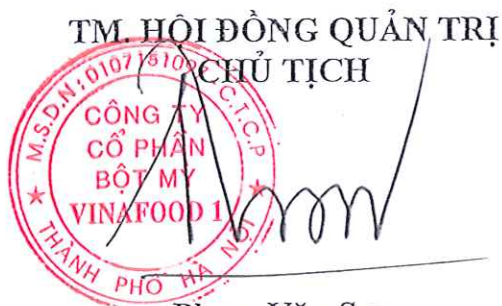 TM. HỘI ĐỒNG QUẢN TRỊ
CHỦ TỊCH
M.S.D.N: C.T.C.P
CÔNG TY
CỔ PHẦN
BỘT MỲ
VINAFOOD 1
THÀNH PHỐ HÀ NỘI